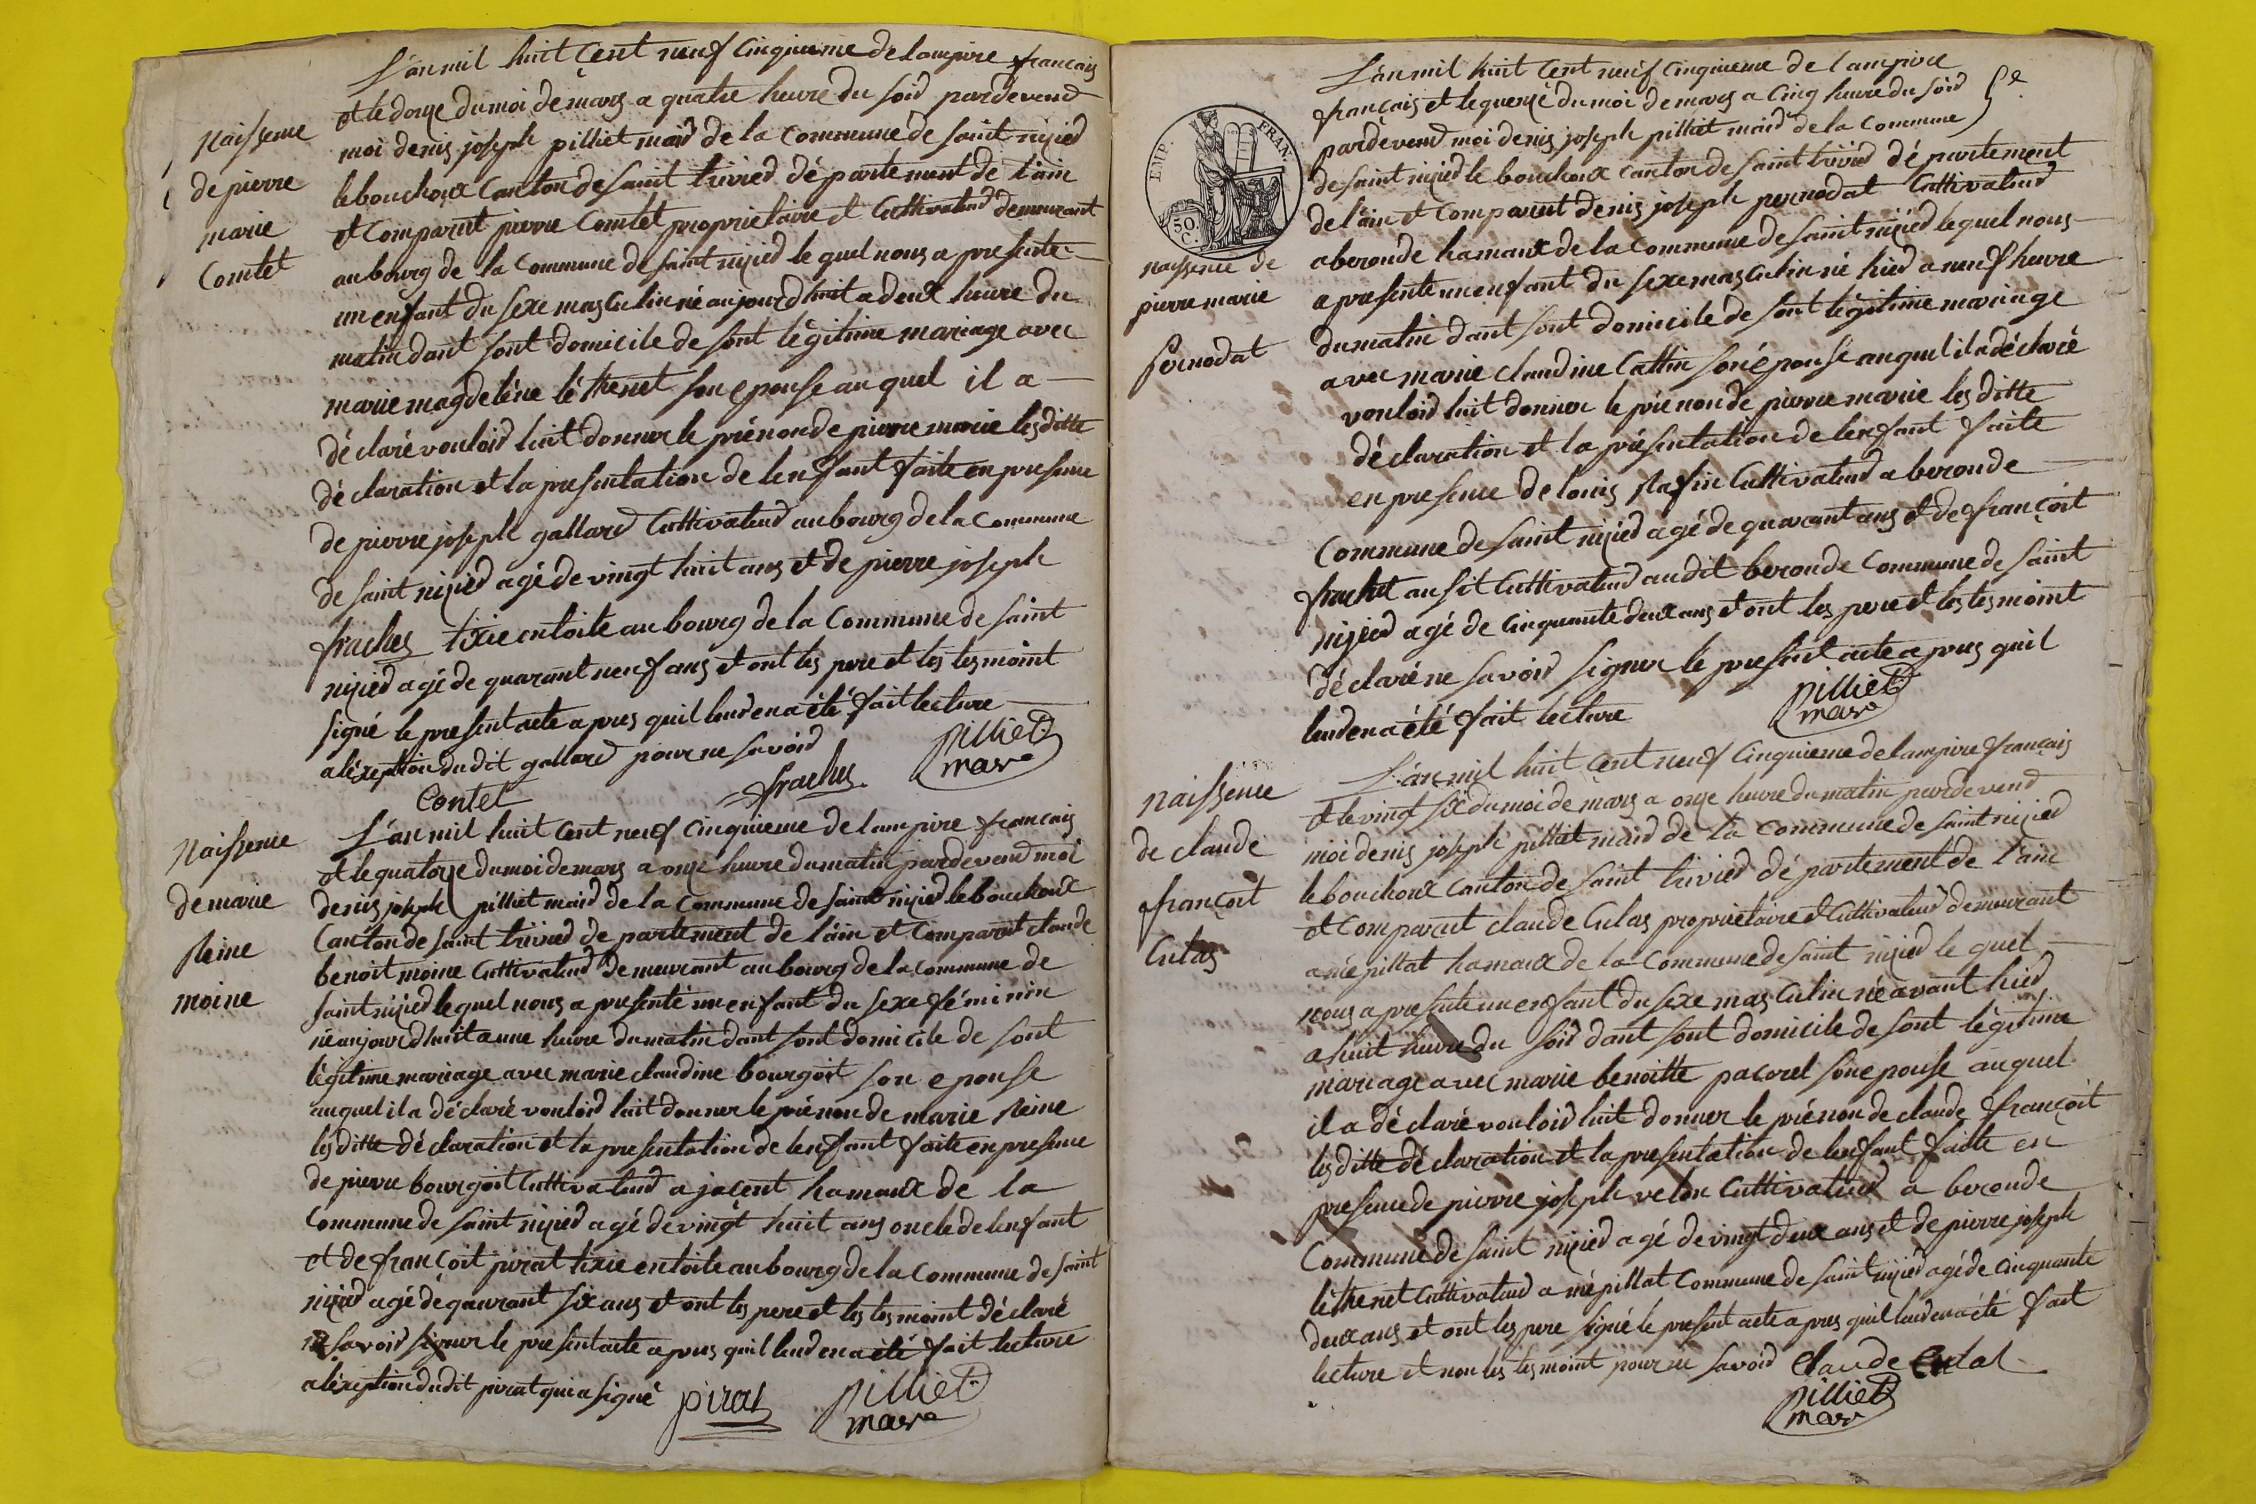 L'an mil huit cent neuf cinquieme de lampire francais
et le douze du moi de mars a quatre heure du soir pardevend
Naissence
moi denis joseph pilliet mair de la Commune de saint nizied
de pierre
le bouchoux Canton de saint trivied département de l'ain
marie
et Comparut pierre Comtet proprietaire et Cultivateud demeurant
Comtet
au bourg de la Commune de saint nizied le quel nous a presenté
un enfant du sexe masculin né aujourdhuit a deux heure du
matin dant sont domicile de sont légitime mariage avec
marie magdeléne léthenet son epouse au quel il a
déclaré vouloid luit donner le prénon de pierre marie les ditte
déclaration et la presentation de lenfant faite en presence
de pierre joseph gallard Cultivateud au bourg de la Commune
de saint nizied agé de vingt huit ans et de pierre joseph
frachet tixie en toile au bourg de la Commune de saint
nizied agé de quarant neuf ans et ont les pere et les tesmoint
signé le present acte apres quil leud en a été fait lecture
a léxeption du dit gallard pour ne savoid
pilliet
mare
Contet
frachet
Naissence
L'an mil huit cent neuf cinquieme de lampire francais
et le quatorze du moi de mars a onze heure du matin pardevend moi
de marie
denis joseph pilliet maid de la Commune de saint nizied le bouchoux
Reine
Canton de saint trivied département de l'ain et Comparut claude
moine
benoit moine Cultivateud demeurant au bourg de la commune de
saint nizied lequel nous a presenté un enfant du sexe féminin
né aujourdhuit a une heure du matin dant sont domicile de sont
légitime mariage avec marie claudine bourgoit son epouse
auquel il a déclaré vouloid luit donner le prénon de marie Reine
les ditte déclaration et la presentation de lenfant faite en presence
de pierre bourgoit Cultivateud a jacent hamaux de la
Commune de saint nizied agé de vingt huit ans oncle de lenfant
et de françoit pirat tixie en toile au bourg de la Commune de saint
nizied agé de qaurant six ans et ont les pere et les tesmoint déclaré
ne savoid signer le present acte apres quil leud en a été fait lecture
a léxeption du dit pirat qui a signé
pirat
pilliet
mare
L'an mil huit cent neuf cinquieme de lampire
francais et le quenze du moi de mars a cinq heure du soid
5e
pardevend moi denis joseph pilliet maid de la Commune
de saint nizied le bouchoux canton de saint trivied département
EMP. FRAN.
50 C.
de l'ain et Comparut denis joseph pernodat Cultivateud
naissence de
a beronde hamaux de la Commune de saint nizied lequel nous
pierre marie
a presenté un enfant du sexe masculin né hied a neuf heure
pernodat
du matin dant sont domicile de sont légitime mariage
avec marie claudine Cattin son épouse auquel il a déclaré
vouloid luit donner le prénon de pierre marie les ditte
déclaration et la présentation de lenfant faite
en presence de louis Rafin Cultivateud a beronde
Commune de saint nizied agé de quarant ans et de françoit
frachet ausit Cultivateud audit beronde Commune de saint
nizied agé de cinquante deux ans et ont les pere et les tesmoint
déclaré ne savoid signer le present acte apres quil
leud en a été fait lécture
pilliet
mare
L'an mil huit cent neuf cinquieme de lampire francais
Naissence
et le vingt six du moi de mars a onze heure du matin pardevend
de claude
moi denis joseph pilliet maid de la Commune de saint nizied
françoit
le bouchoux canton de saint trivied département de l'ain
Culas
et Comparut claude Culas proprietaire et Cultivateud demeurant
a mépillat hamaux de la Commune de saint nizied le quel
nous a presenté un enfant du sexe masculin né avant hied
a huit heure du soid dant sont domicile de sont légitime
mariage avec marie benoitte pacorel son epouse auquel
il a déclaré vouloid luit donner le prénon de claude françoit
les ditte déclaration et la presentation de lenfant faitte en
presence de pierre joseph velon Cultivateud a beronde
Commune de saint nizied agé de vingt deux ans et de pierre joseph
léthenet Cultivateud a mépillat Commune de saint nizied agé de cinquante
deux ans et ont les pere signé le present acte apres quil leud en a été fait
lecture et non les tesmoint pour ne savoid
Claude Culas
pilliet
mare